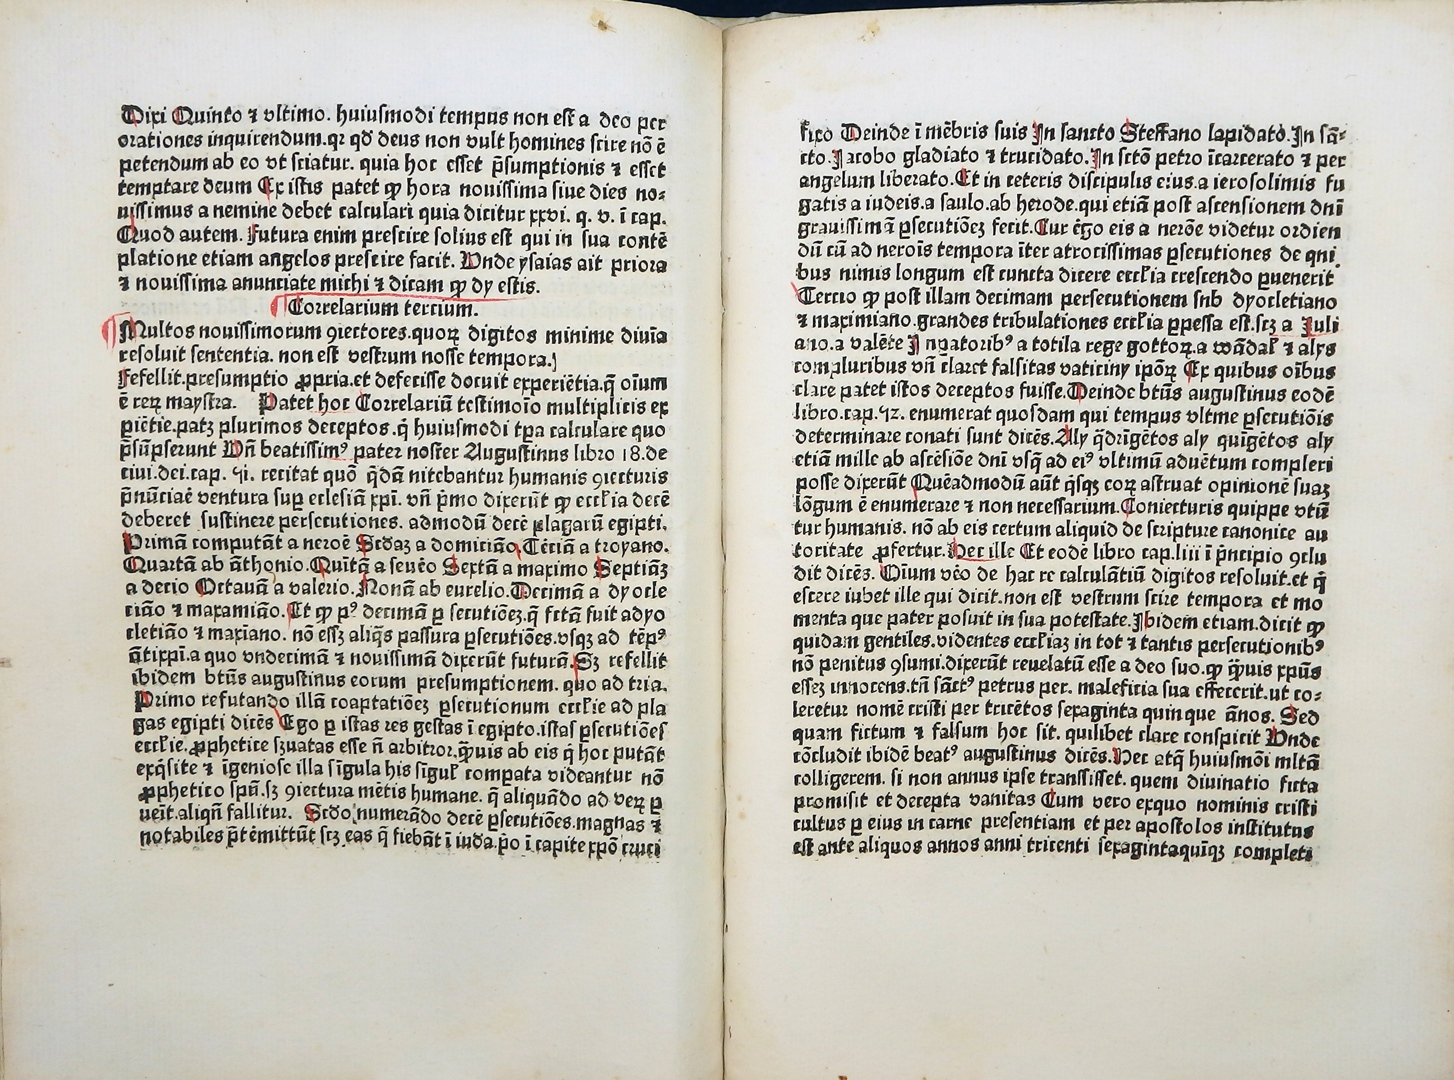 Dixi Quinto ⁊ vltimo. huiusmodi tempus non est a deo per
orationes inquirendum.qꝛ qd̄ deus non vult homines scire nō ē
petendum ab eo vt sciatur. quia hoc esset p̄sumptionis ⁊ esset
temptare deum Ex istis patet ꝙ hora nouissima siue dies no⸗
uissimus a nemine debet calculari quia dicitur xxvi. q. v. ī cap.
Quod autem. Futura enim prescire solius est qui in sua contē
platione etiam angelos prescire facit. Vnde ysaias ait priora
⁊ nouissima anunciate michi ⁊ dicam ꝙ dy estis.
Correlarium tercium.
Multos nouissimorum ꝯiectores.quoꝝ digitos minime diuīa
resoluit sententia. non est vestrum nosse tempora.)
Fefellit.presumptio ꝓpria.et defecisse docuit experiētia.q̄ oīum
ē reꝝ maystra. Patet hoc Correlariū testimoīo multiplicis ex
piētie.patꝫ plurimos deceptos.q̄ huiusmodi tp̄a calculare quo
p̄sūpserunt Vn̄ beatissimꝰ pater noster Augustinus libro 18.de
ciui.dei.cap. 51. recitat quō q̄dā nitebantur humanis ꝯiecturis
p̄nūciaē ventura suꝑ eclesiā xpī. vn̄ p̄mo dixerūt ꝙ eccl̄ia decē
deberet sustinere persecutiones. admodū decē plagarū egipti.
Primā computāt a neroē Scd̄aꝫ a domiciāo Tēciā a troyano.
Quartā ab āthonio.Quītā a seuēo Sextā a maximo Septiāꝫ
a decio Octauā a valerio. Nonā ab eurelio.Decimā a dyocle
ciāo ⁊ maxamiāo.Et ꝙ pꝰ decimā ꝑ secutiōeꝫ.q̄ fctā fuit adyo
cletiāo ⁊ maxīano. nō essꝫ aliq̄s passura ꝑsecutiōes.vsqꝫ ad tēpꝰ
ātixpī.a quo vndecimā ⁊ nouissimā dixerūt futurā.Sꝫ refellit
ibidem btūs augustinus eorum presumptionem. quo ad tria.
Primo refutando illā coaptatiōeꝫ ꝑsecutionum eccl̄ie ad pla
gas egipti dicēs Ego ꝑ istas res gestas ī egipto.istas ꝑsecutiōes
eccl̄ie.ꝓphetice sꝫuatas esse n̄ arbitror.q̄uis ab eis q̄ hoc putāt
exq̄site ⁊ īgeniose illa sīgula his sīgul̄ compata videantur nō
ꝓphetico spū.sꝫ ꝯiectura mētis humane. q̄ aliquādo ad veꝝ ꝑ
ueīt.aliqn̄ fallitur. Scd̄o numerādo decē ꝑsecutiōes.magnas ⁊
notabiles p̄tēmittūt scꝫ eas q̄ fiebāt ī iuda.p̄o ī capite xp̄o cruci
fixo Deinde ī mēbris suis In sancto Steffano lapidato.In sā⸗
cto.Jacobo gladiato ⁊ trucidato.In sctō petro īcarcerato ⁊ per
angelum liberato.Et in ceteris discipulis eius.a ierosolimis fu
gatis a iudeis.a saulo.ab herode.qui etiā post ascensionem dnī
grauissimā ꝑsecutiōeꝫ fecit.Cur ēgo eis a neroē videtur ordien
dū cū ad neroīs tempora īter atrocissimas ꝑsecutiones de qui
bus nimis longum est cuncta dicere eccl̄ia crescendo ꝑuenerit
Tercio ꝙ post illam decimam persecutionem snb dyocletiano
⁊ maximiano.grandes tribulationes eccl̄ia ꝑpessa est.scꝫ a Juli
ano.a valēte J nouatoribꝰ a totila rege gottoꝝ.a wādal̄ ⁊ alys
compluribus vn̄ claret falsitas vaticiny ipōꝝ Ex quibus oībus
clare patet istos deceptos fuisse.Deinde btūs augustinus eodē
libro.cap.52. enumerat quosdam qui tempus vltīme ꝑsecutiōis
determinare conati sunt dicēs.Aly q̄drīgētos aly quīgētos aly
etiā mille ab ascēsiōe dnī vsq̄ ad eiꝰ vltimū aduētum compleri
posse dixerūt Quēadmodū aūt q̄sqꝫ coꝝ astruat opinionē suaꝫ
lōgum ē enumerare ⁊ non necessarium.Coniecturis quippe vtū
tur humanis. nō ab eis certum aliquid de scripture canonice au
toritate ꝓfertur.Hec ille Et eodē libro cap.liii ī p̄ncipio ꝯclu
dit dicēs. Oīum vēo de hac re calculātiū digitos resoluit.et q̄
escere iubet ille qui dicit.non est vestrum scire tempora et mo
menta que pater posuit in sua potestate.Ibidem etiam.dicit ꝙ
quidam gentiles.videntes eccl̄iaꝫ in tot ⁊ tantis persecutionibꝰ
nō penitus ꝯsumi.dixerūt reuelatū esse a deo suo.ꝙ q̄uis xpūs
esseꝫ innocens.tn̄ sāctꝰ petrus per. maleficia sua effecerit.ut co⸗
leretur nomē cristi per tricētos sexaginta quinque ānos. Sed
quam fictum ⁊ falsum hoc sit. quilibet clare conspicit Vnde
cōcludit ibidē beatꝰ augustinus dicēs.Hec atq̄ huiusmōi mltā
colligerem. si non annus ipse transsisset. quem diuinatio ficta
promisit et decepta vanitas Cum vero exquo nominis cristi
cultus ꝑ eius in carne presentiam et per apostolos institutus
est ante aliquos annos anni tricenti sexagintaquīqꝫ completi